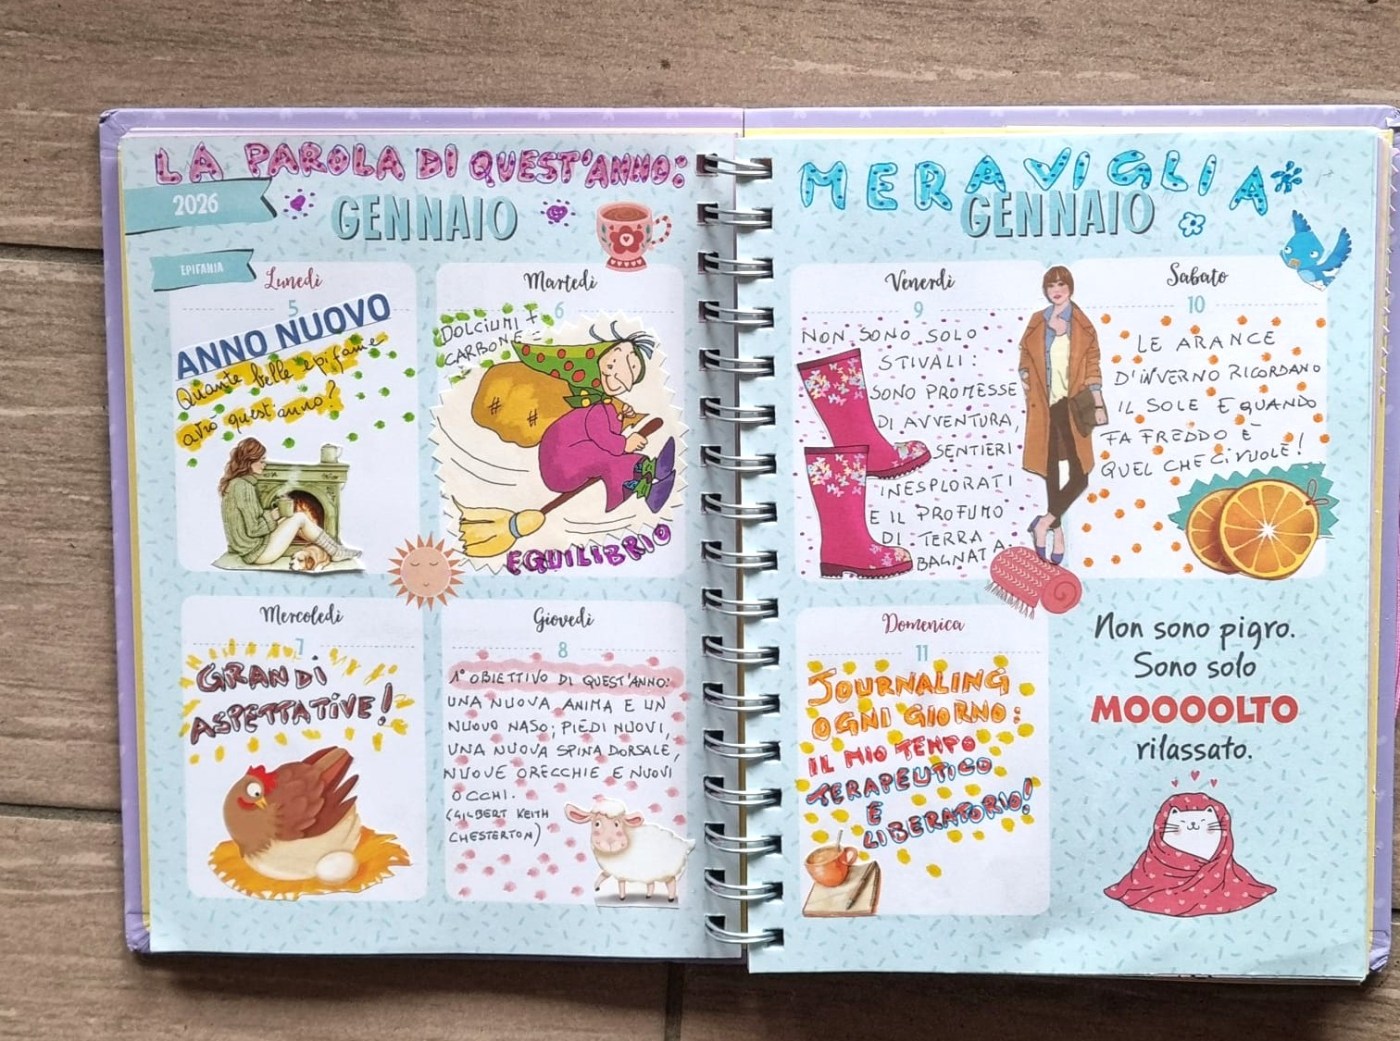 LA PAROLA DI QUEST'ANNO:
2026
GENNAIO
EPIFANIA
Lunedì
5
ANNO NUOVO
Quante belle epifanie
avrò quest'anno?
Martedì
6
DOLCIUMI +
CARBONE =
EQUILIBRIO
Mercoledì
7
GRANDI
ASPETTATIVE!
Giovedì
8
1° OBIETTIVO DI QUEST'ANNO:
UNA NUOVA ANIMA E UN
NUOVO NASO; PIEDI NUOVI,
UNA NUOVA SPINA DORSALE,
NUOVE ORECCHIE E NUOVI
OCCHI.
(GILBERT KEITH
CHESTERTON)
MERAVIGLIA
GENNAIO
Venerdì
9
NON SONO SOLO
STIVALI:
SONO PROMESSE
DI AVVENTURA,
SENTIERI
INESPLORATI
E IL PROFUMO
DI TERRA
BAGNATA.
Sabato
10
LE ARANCE
D'INVERNO RICORDANO
IL SOLE E QUANDO
FA FREDDO È
QUEL CHE CI VUOLE!
Domenica
11
JOURNALING
OGNI GIORNO:
IL MIO TEMPO
TERAPEUTICO
E
LIBERATORIO!
Non sono pigro.
Sono solo
MOOOOLTO
rilassato.